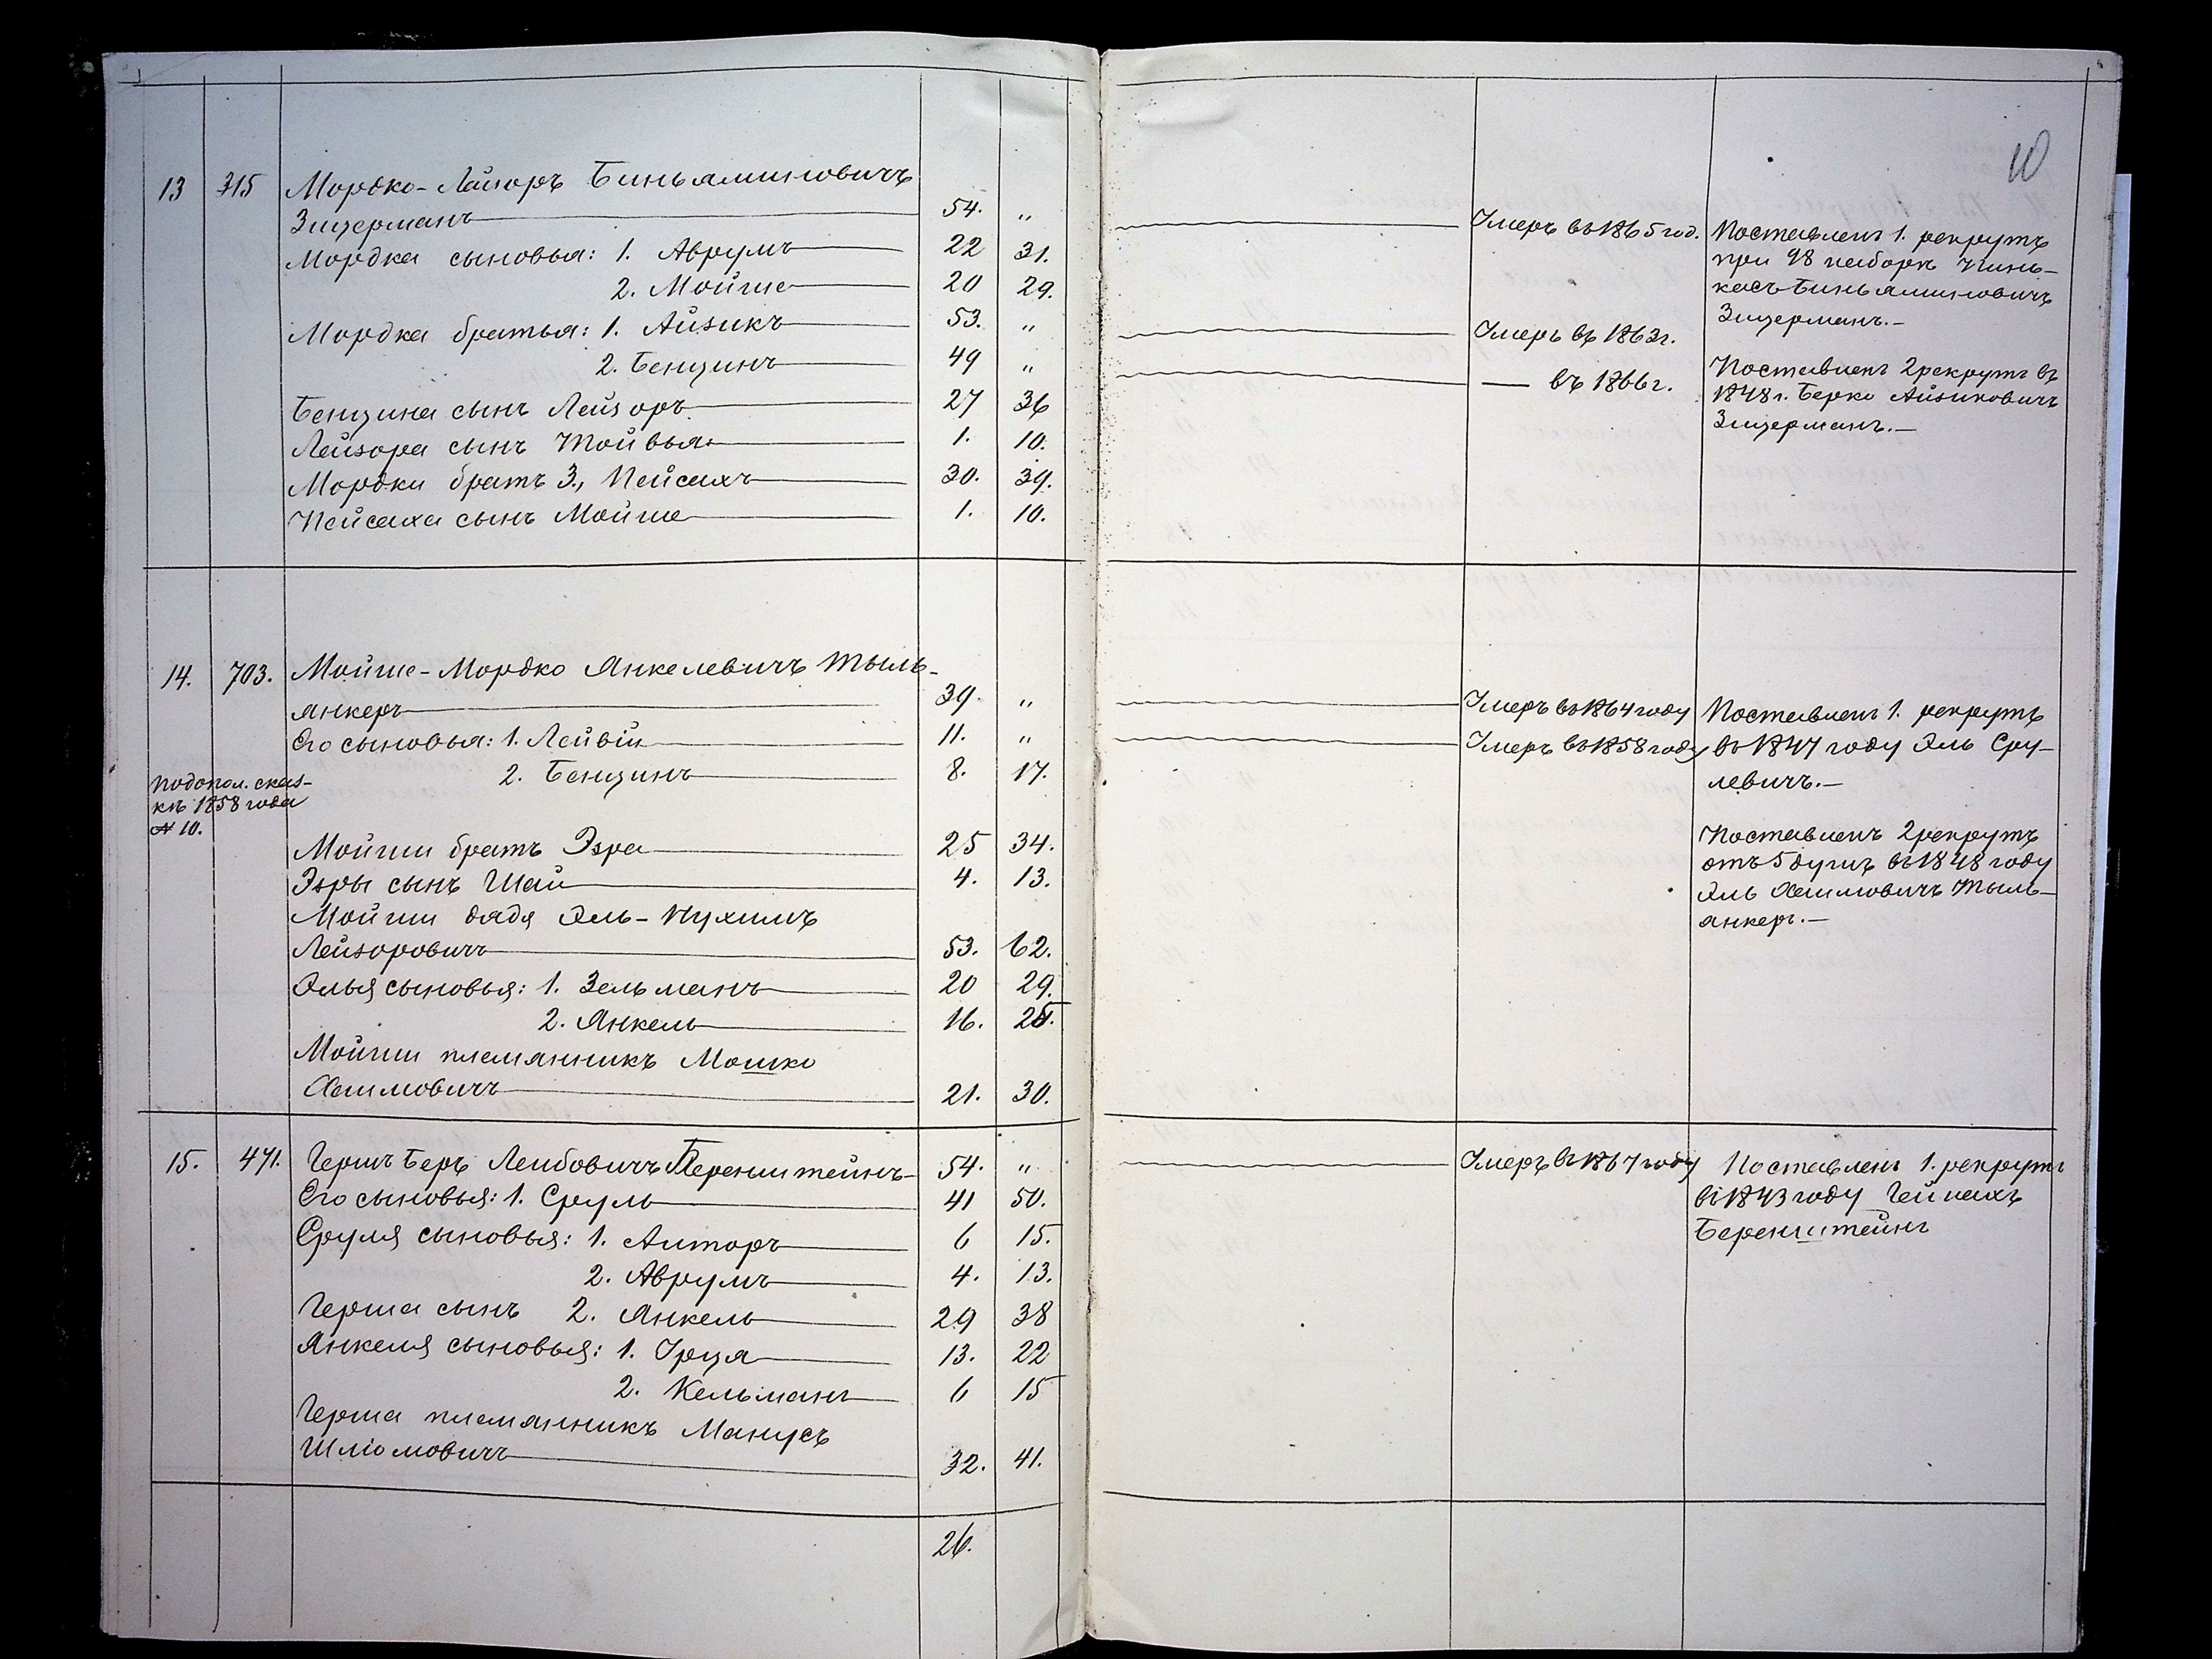 10
13 315 Мордко-Лейзоръ Биньяминовичъ
Зицерманъ 54. „ Умеръ въ 1865 год.
Мордка сыновья: 1. Аврумъ 22 31.
2. Мойше 20 29.
Мордка братья: 1. Айзикъ 53. „ Умеръ въ 1863г.
2. Бенцинъ 49 „ — въ 1866г.
Бенцина сынъ Лейзоръ 27 36
Лейзора сынъ Тойвья 1. 10.
Мордки братъ 3., Пейсахъ 30. 39.
Пейсаха сынъ Мойше 1. 10.
Поставленъ 1. рекрутъ
при 98 наборѣ Пинь-
касъ Биньяминовичъ
Зицерманъ.—
Поставленъ 2 рекрутъ въ
1848г. Берко Айзиковичъ
Зицерманъ.—
14. 703. Мойше-Мордко Янкелевичъ Тыль-
янкеръ 39. „ Умеръ въ 1864 году
Его сыновья: 1. Лейвій 11. „ Умеръ въ 1858 году
2. Бенцинъ 8. 17.
по допол. сказ-
кѣ 1858 года
№ 10.
Мойши братъ Эзра 25 34.
Эзры сынъ Шай 4. 13.
Мойши дядя Эль-Нухимъ
Лейзоровичъ 53. 62.
Элья сыновья: 1. Зельманъ 20 29.
2. Янкель 16. 25.
Мойши племянникъ Мошко
Хаимовичъ 21. 30.
Поставленъ 1. рекрутъ
въ 1847 году Эль Сру-
левичъ.—
Поставленъ 2 рекрутъ
отъ 5 душъ въ 1848 году
Эль Хаимовичъ Тыль-
анкеръ.—
15. 471. Гершъ Беръ Лейбовичъ Беренштейнъ 54. „ Умеръ въ 1867 году
Его сыновья: 1. Сруль 41 50.
Сруля сыновья: 1. Алторъ 6 15.
2. Аврумъ 4. 13.
Герша сынъ 2. Янкель 29 38
Янкеля сыновья: 1. Уруя 13. 22
2. Кельманъ 6 15
Герша племянникъ Манусъ
Шліомовичъ 32. 41.
Поставленъ 1. рекрутъ
въ 1843 году Гейнахъ
Беренштейнъ
26.